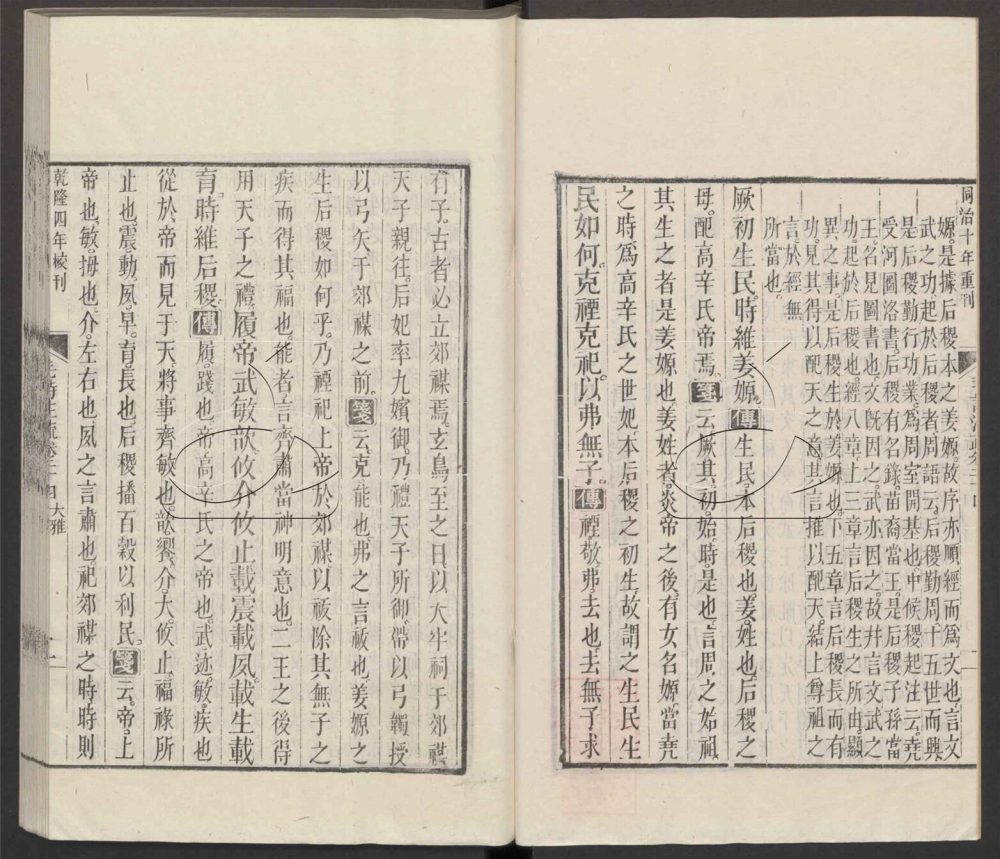 同治十年重刊
嫄是據后稷本之姜嫄故序亦順經而爲文也言文
武之功起於后稷者周語云后稷勤周十五世而興
是后稷勤行功業爲周室開基也中候稷起注云堯
受河圖洛書后稷有名錄苗裔當王是后稷子孫當
王名見圖書也文旣因之武亦因之故幷言文武之
功起於后稷也經八章上三章言后稷生之所由顯
異之事是后稷生於姜嫄也下五章言后稷長而有
功見其得以配天之意其言推以配天結上尊祖之
言於經無
所當也
厥初生民時維姜嫄傳生民本后稷也姜姓也后稷之
母配高辛氏帝焉箋云厥其初始時是也言周之始祖
其生之者是姜嫄也姜姓者炎帝之後有女名嫄當堯
之時爲高辛氏之世妃本后稷之初生故謂之生民生
民如何克禋克祀以弗無子傳禋敬弗去也去無子求
有子古者必立郊禖焉玄鳥至之日以大牢祠于郊禖
天子親往后妃率九嬪御乃禮天子所御帶以弓韣授
以弓矢于郊禖之前箋云克能也弗之言祓也姜嫄之
生后稷如何乎乃禋祀上帝於郊禖以祓除其無子之
疾而得其福也能者言齊肅當神明意也二王之後得
用天子之禮履帝武敏歆攸介攸止載震載夙載生載
育時維后稷傳履踐也帝高辛氏之帝也武迹敏疾也
從於帝而見于天將事齊敏也歆饗介大攸止福祿所
止也震動夙早育長也后稷播百穀以利民箋云帝上
帝也敏拇也介左右也夙之言肅也祀郊禖之時時則
乾隆四年校刊
大雅